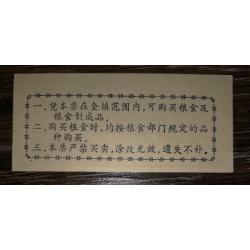 一、凭本票在全镇范围内,可购买粮食及
粮食制成品。
二、购买粮食时,均按粮食部门规定的品
种购买。
三、本票严禁买卖,涂改无效,遗失不补。